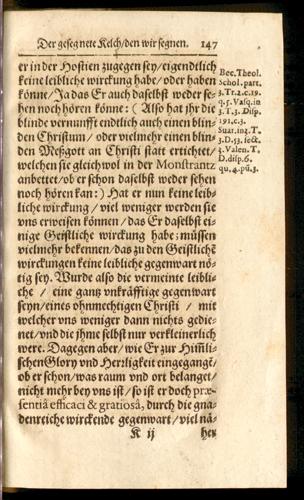 Der gesegnete Kelch/den wir segnen. 147
er in der Hostien zugegen sey/eigendtlich
keine leibliche wirckung habe/oder haben
könne/Ja das Er auch daselbst weder se-
hen noch hören könne: (Also hat jhr die
blinde vernunfft endtlich auch einen blin-
den Christum/ oder vielmehr einen blin-
den Meßgott an Christi statt ertichtet/
welchen sie gleich wol in der Monstrantz
anbettet/ob er schon daselbst weder sehen
noch hören kan:) Hat er nun keine leib-
liche wirckung/viel weniger werden sie
uns erweisen können/das Er daselbst ei-
nige Geistliche wirckung habe; müssen
vielmehr bekennen/das zu den Geistlichẽ
wirckungen keine leibliche gegenwart nö-
tig sey. Wurde also die vermeinte leibli-
che / eine gantz unkräfftige gegenwart
seyn/eines ohnmechtigen Christi / mit
welcher uns weniger dann nichts gedie-
net/vnd die jhme selbst nur verkleinerlich
were. Dagegen aber/wie Er zur Him̃li-
schen Glory vnd Herrligkeit eingegangẽ/
ob er schon/was raum vnd ort belanget/
nicht mehr bey vns ist/so ist er doch præ-
sentiâ efficaci & gratiosâ, durch die gna-
denreiche wirckende gegenwart/viel nä-
K ij
her
Bec. Theol.
Schol. part.
3. Tr. 2. c. 19.
q. 5. Vasq. in
3. T. 3. Disp.
191, c. 3.
Suar. inz. T.
3. D. 53. sect.
4. Valen. T.
D. disp. 6.
qu. 4. pũ. 3.